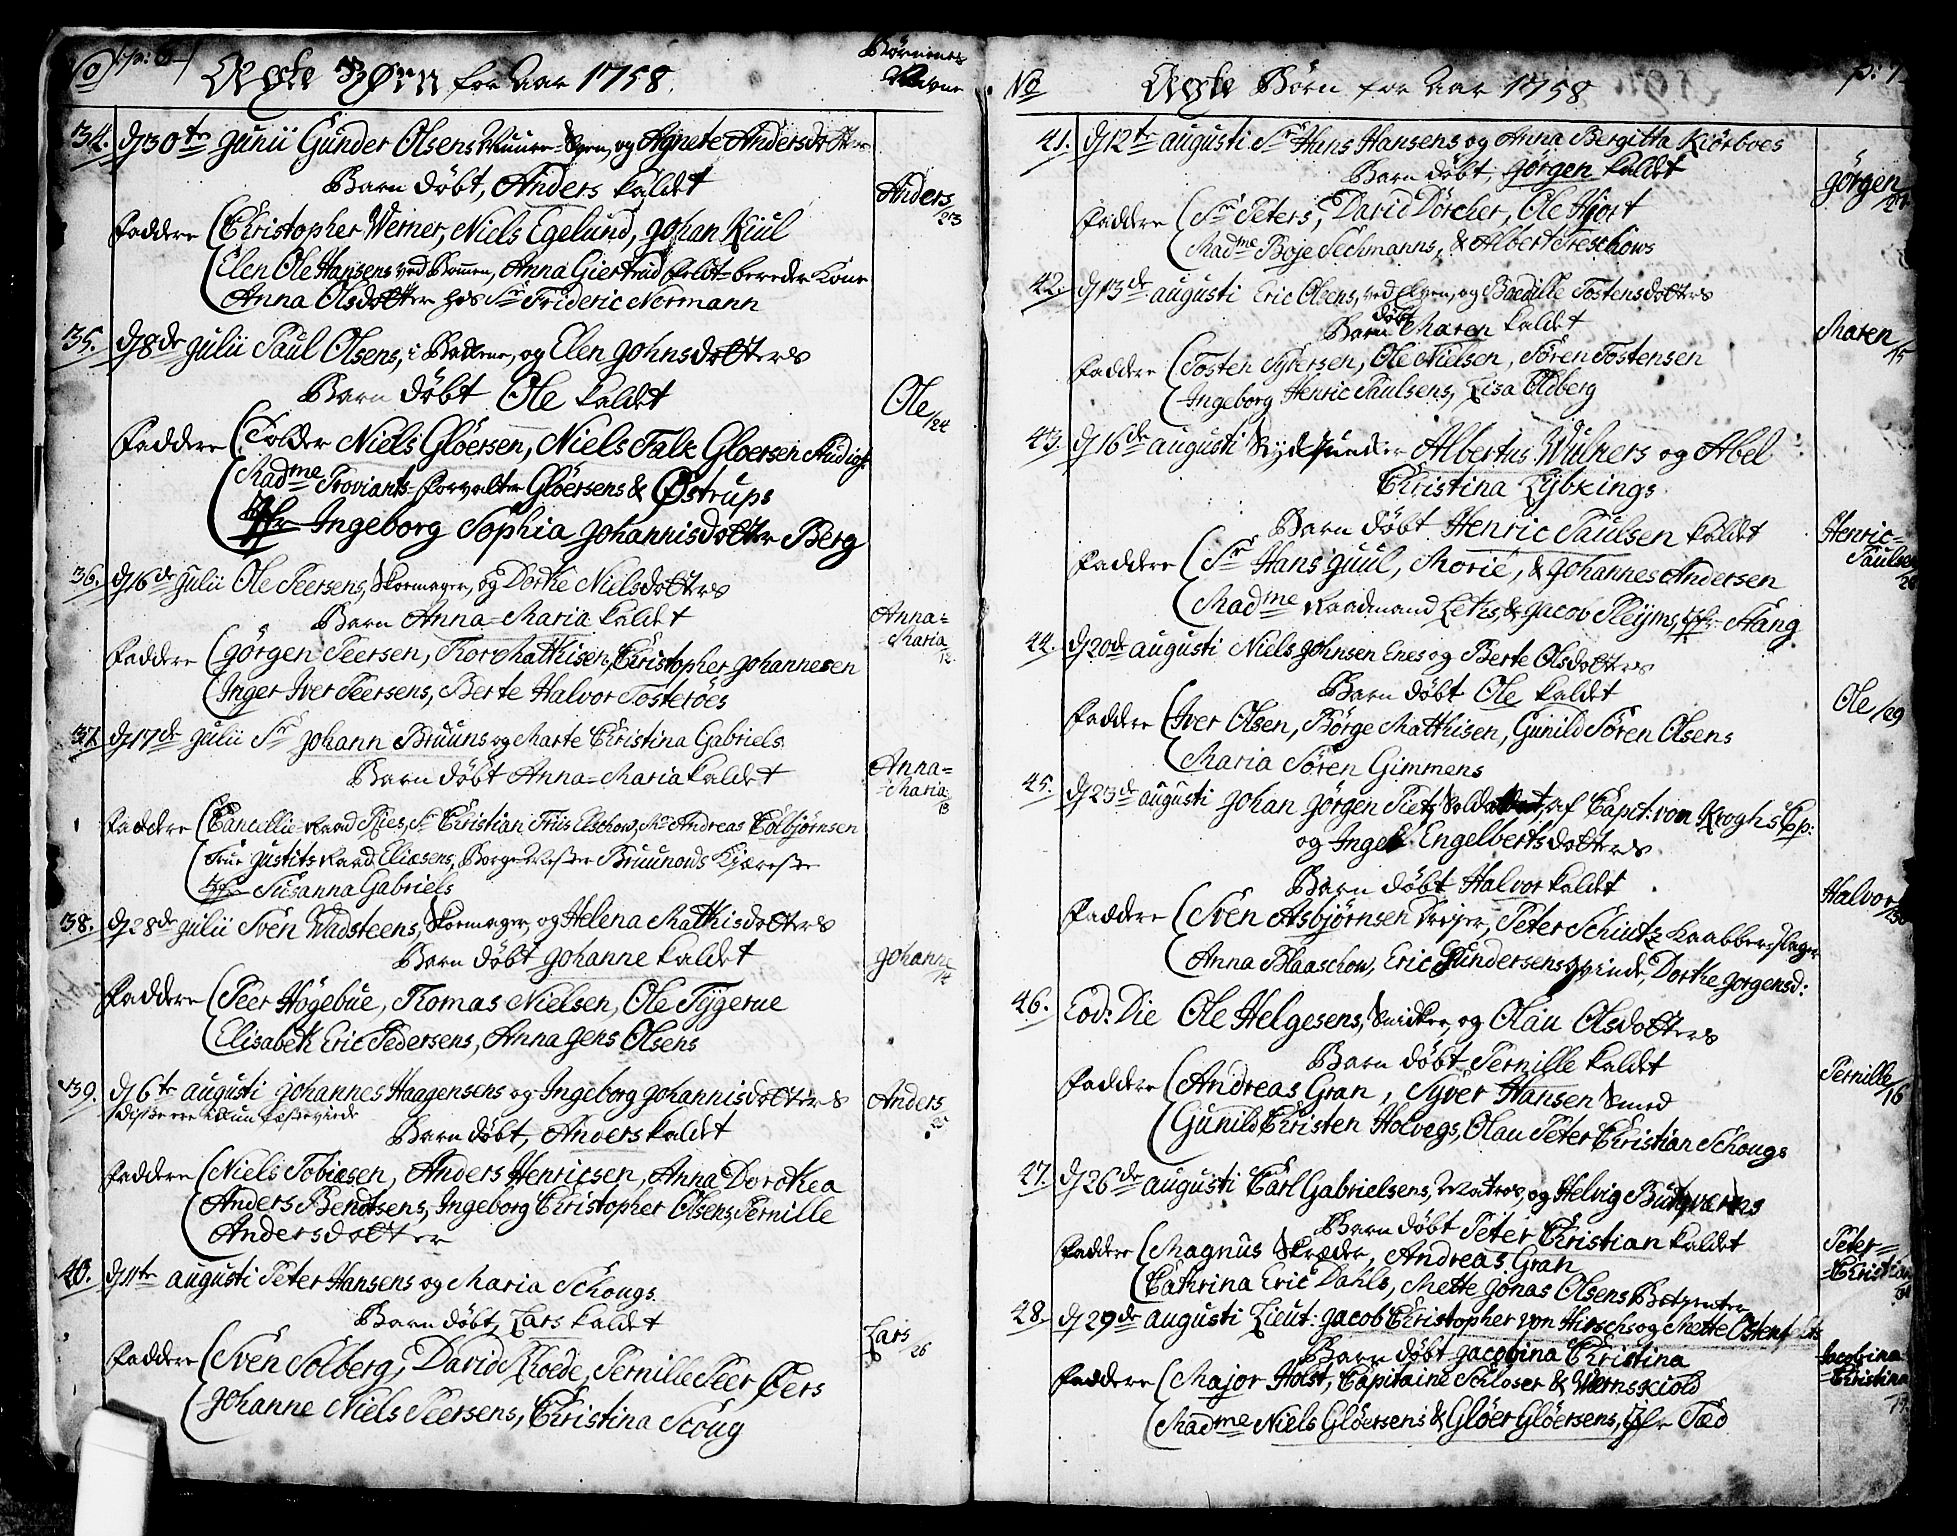 No p: 6
Ægte Børn for Aar 1758.
Børnenes Navne
34. d 30te Junii Gunder Olsens Muure-Sven, og Agnete Andersdotter
Barn døbt, Anders kaldet
Anders/23
Faddere (Christopher Werner, Niels Egelund, Johan Kiul
(Elen Ole Hansens ved Bommen, Anna Giertrud Feldt-bereder Kone
Anna Olsdotter hos Sr Frideric Normann
35. d 8de Julii Paul Olsens, i Bakkene, og Elen Johnsdotters
Barn døbt Ole kaldet
Ole/24
Faddere (Tolder Niels Glöersen, Niels Falk Gloersen Studios:
(Madme Proviants-forvalter Glöersens & Østrups
Jfr Ingeborg Sophia Johannisdotter Berg
36. d 16de Julii Ole Peersens, Skomager, og Dorthe Nielsdotters
Barn Anna=Maria kaldet
Anna=Maria/12
Faddere (Jörgen Peersen, Thor Mathisen, Christopher Johannesen
(Inger Iver Peersens, Berte Halvor Tosteröes
37. d 17de Julii Sr Johann Bruuns og Marte Christina Gabriels
Barn døbt Anna=Maria kaldet
Anna=Maria/13
Faddere (Cancellie Raad Ries, Sr Christian Friis Elschow, Mr Andreas Colbjörnsen
(Frue Justits Raad Eliæsens, Borge-Mester Bruunous Kjæreste
Jfr Susanna Gabriels
38. d 28de Julii Sven Wadsteens, Skomager, og Helena Mathisdotters
Barn døbt Johanne kaldet
Johanne/14
Faddere (Peer Högebue, Thomas Nielsen, Ole Tygerue
(Elisabeth Eric Pedersens, Anna Jens Olsens
39. d 6te augusti Johannes Haagensens og Ingeborg Johannisdotters
disse ere
Barn døbt, Anders kaldet
Anders
Faddere (Niels Tobiæsen, Anders Henricsen, Anna Dorothea
(Anders Bendtsens, Ingeborg Christopher Olsens, Pernille
Andersdotter
40. d 11te augusti Peter Hansens og Maria Schougs.
Barn døbt, Lars kaldet
Lars/26
Faddere (Sven Solberg, David Rhode, Pernille Peer Pers
(Johanne Niels Peersens, Christina Scoug
No
Ægte Børn for Aar 1758
p: 7
41. d 12te augusti Sr Hans Hansens og Anna Bergitta Kiörboes
Barn døbt, Jørgen kaldet
Jörgen
Faddere (Sr Peters, David Dörcher, Ole Hjort
(Madme Boje Techmanns, & Albert Treschows
42. d 13de augusti Eric Olsens, ved Elven, og Boedille Tostensdotters
Barn døbt Maren kaldet
Maren/15
Faddere (Tosten Syversen, Ole Nielsen, Sören Tostensen
(Ingeborg Henric Paulsens, Lisa Oldberg
43. d 16de augusti Albertus Wulners og Abel
Christina Lybkings
Barn døbt Henric Paulsen kaldet
Henric=Paulsen/28
Faddere (Sr Hans Juul, Morié, & Johannes Andersen
(Madme Raadmand Leths, & Jacob Pleyms, Jfr Stang
44. d 20de augusti Niels Johnsen Enes og Berte Olsdotters
Barn døbt Ole kaldet
Ole/29
Faddere (Iver Olsen, Börge Mathisen, Gunild Sören Olsens
(Maria Sören Gimmens
45. d 23de augusti Johan Jörgen Pietz Soldat, af Capit: von Kroghs Cp:
og Inge Engelbertsdotters
Barn døbt Halvor kaldet
Halvor/30
Faddere (Sven Asbjörnsen Dreyer, Peter Schutz Kaabberslager
(Anna Blaaschow, Eric Gundersens Qvinde, Dorthe Jorgensd:
46. Eod: Die Ole Helgesens, Snidker, og Olau Olsdotters
Barn døbt Pernille kaldet
Pernille/16
Faddere (Andreas Gran, Syver Hansen Smed
(Gunild Christen Holvegs, Olau Peter Christian Schougs
47. d 26de augusti Carl Gabrielsens, Matros, og Helvig
Barn døbt Peter Christian kaldet
Peter=Christian/31
Faddere (Magnus Skræder, Andreas Gran
(Cathrina Eric Dahls, Mette Jonas Olsens
48. d 29de augusti Lieut: Jacob Christopher von Hirschs og Mette Ostenfelts
Barn døbt Jacobina Christina
Jacobina=Christina/17
Faddere (Major Holst, Capitaine Schloser & Wernskiold
(Madme Niels Glöersens & Glöer Glöersens, Jfr Tæd